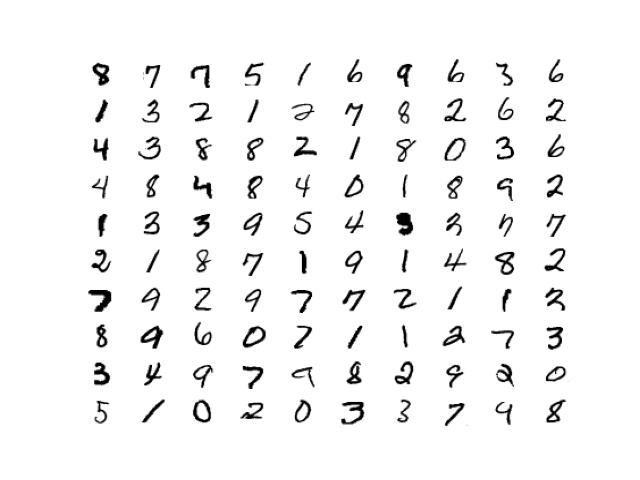 8 7 7 5 1 6 9 6 3 6
1 3 2 1 2 7 8 2 6 2
4 3 8 8 2 1 8 0 3 6
4 8 4 8 4 0 1 8 9 2
1 3 3 9 5 4 3 2 7 7
2 1 8 7 1 9 1 4 8 2
7 9 2 9 7 7 2 1 1 2
8 9 6 0 7 1 1 2 7 3
3 4 9 7 9 8 2 9 2 0
5 1 0 2 0 3 3 7 9 8